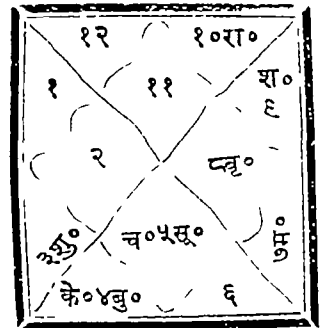 १२ १०रा०
१ ११ श०
९
२ ८वृ०
३शु० च०५सू० ७म०
के०४बु० ६